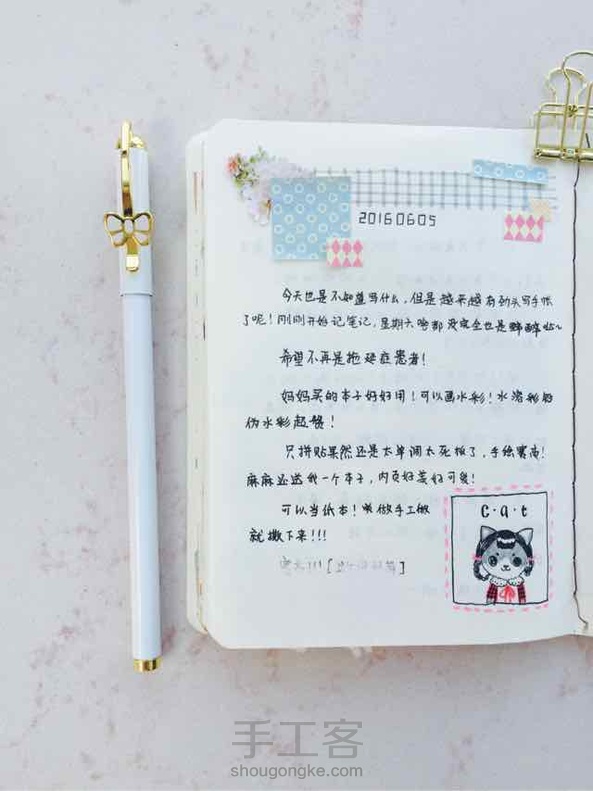 20160605
今天也是不知道写什么，但是越来越有劲头写手帐
了呢！刚刚开始记笔记，星期六啥都没完全也是醉醉哒~
希望不再是拖延症患者！
妈妈买的本子好好用！可以画水彩！水溶彩铅
伪水彩超赞！
只拼贴果然还是太单调太死板了，手绘
麻麻还送我一个本子，内页好萌好可爱！
可以当纸本！做手工做
就撒下来!!!
c·a·t
手工客
shougongke.com